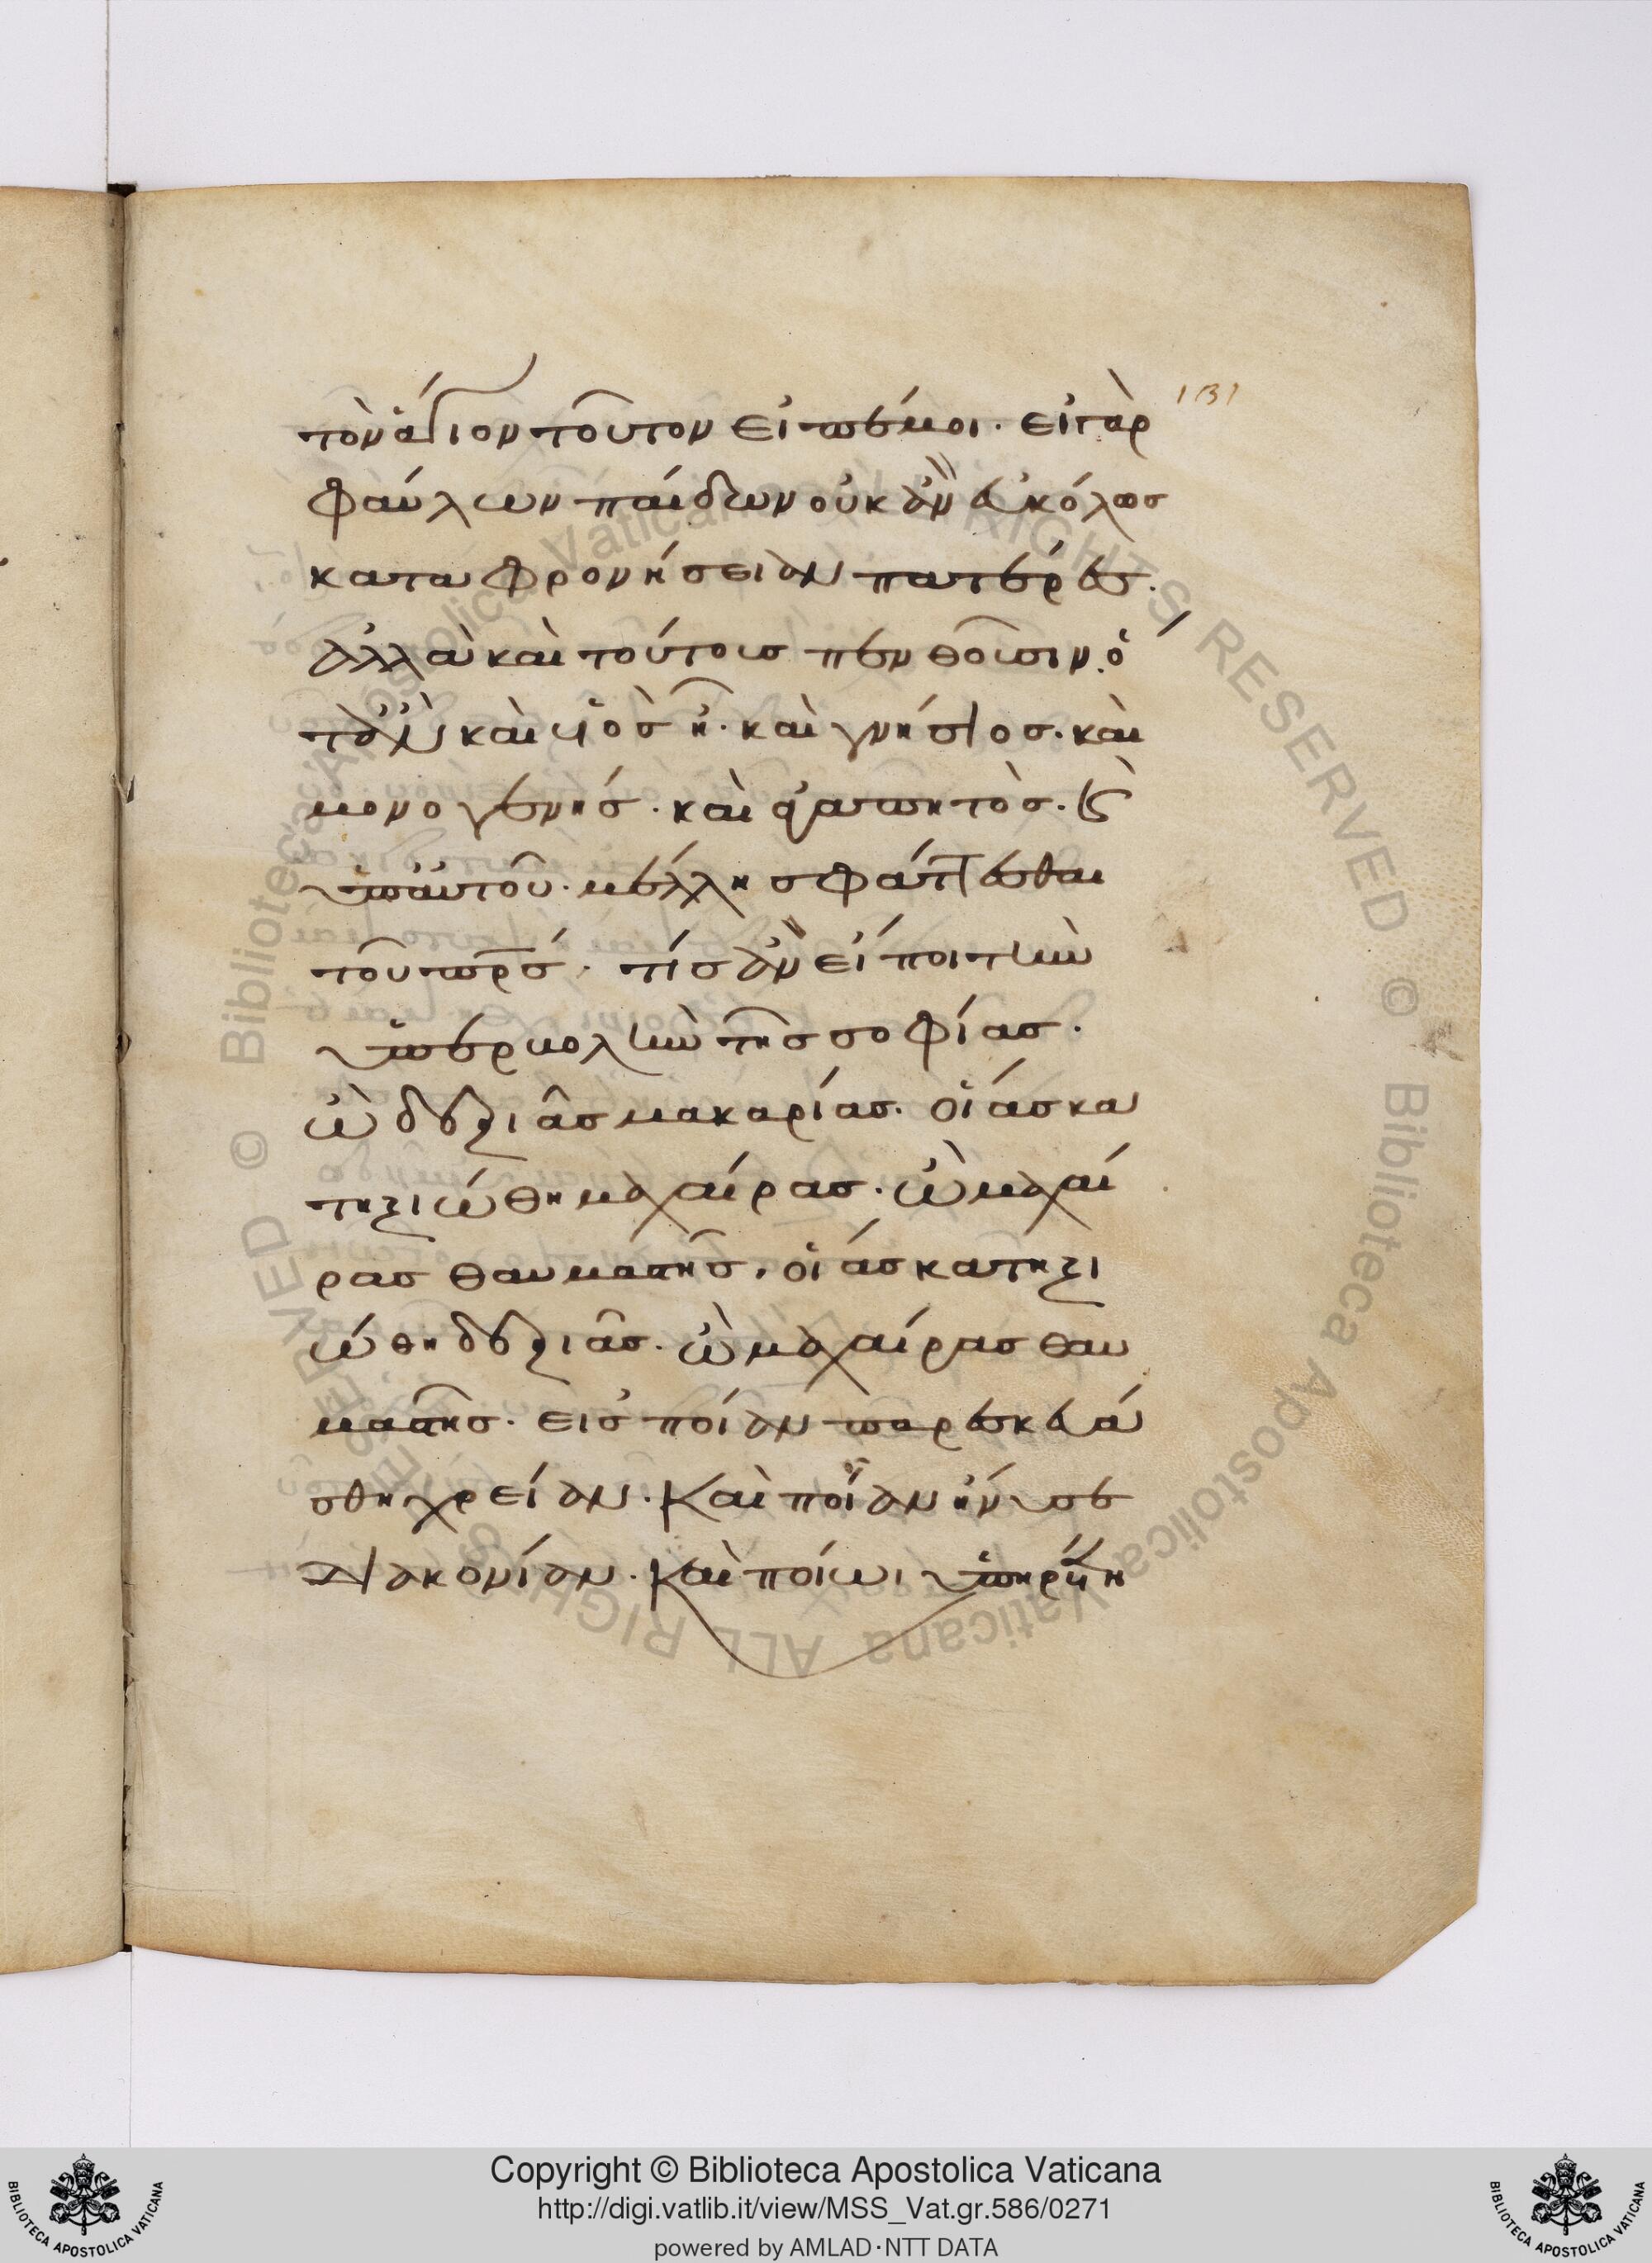 131
τὸν ἅγιον τοῦτον εἰπέ μοι. εἰ γὰρ
φαύλων παίδων οὐκ ἂν εὐκόλως
καταφρονήσειαν πατέρες.
ἀλλὰ καὶ τούτοις πενθοῦσιν. ὁ
τὰν καὶ υἱὸς ἦ. καὶ γνήσιος. καὶ
μονογενής. καὶ ἀγαπητὸς. καὶ
ὑπ' αὐτοῦ. μέλλη σφάττεσθαι
τοῦ πρς. τίς ἂν εἴποι τὴν
ὑπερβολὴν τῆς σοφίας.
ὢ δεξιᾶς μακαρίας. οἵας κα
τηξιώθη μαχαίρας. ὢ μαχαί
ρας θαυμαστῆς. οἵας κατηξι
ώθη δεξιᾶς. ὢ μαχαίρας θαυ
μαστῆς. εἰς ποίαν παρεσκευά
σθη χρείαν. καὶ ποίαν ἤνυσε
διακονίαν. καὶ ποίωι ὑπηρέτη
Copyright © Biblioteca Apostolica Vaticana
http://digi.vatlib.it/view/MSS_Vat.gr.586/0271
powered by AMLAD·NTT DATA
BIBLIOTECA APOSTOLICA VATICANA
BIBLIOTECA APOSTOLICA VATICANA
© Biblioteca Apostolica Vaticana ALL RIGHTS RESERVED © Biblioteca Apostolica Vaticana ALL RIGHTS RESERVED